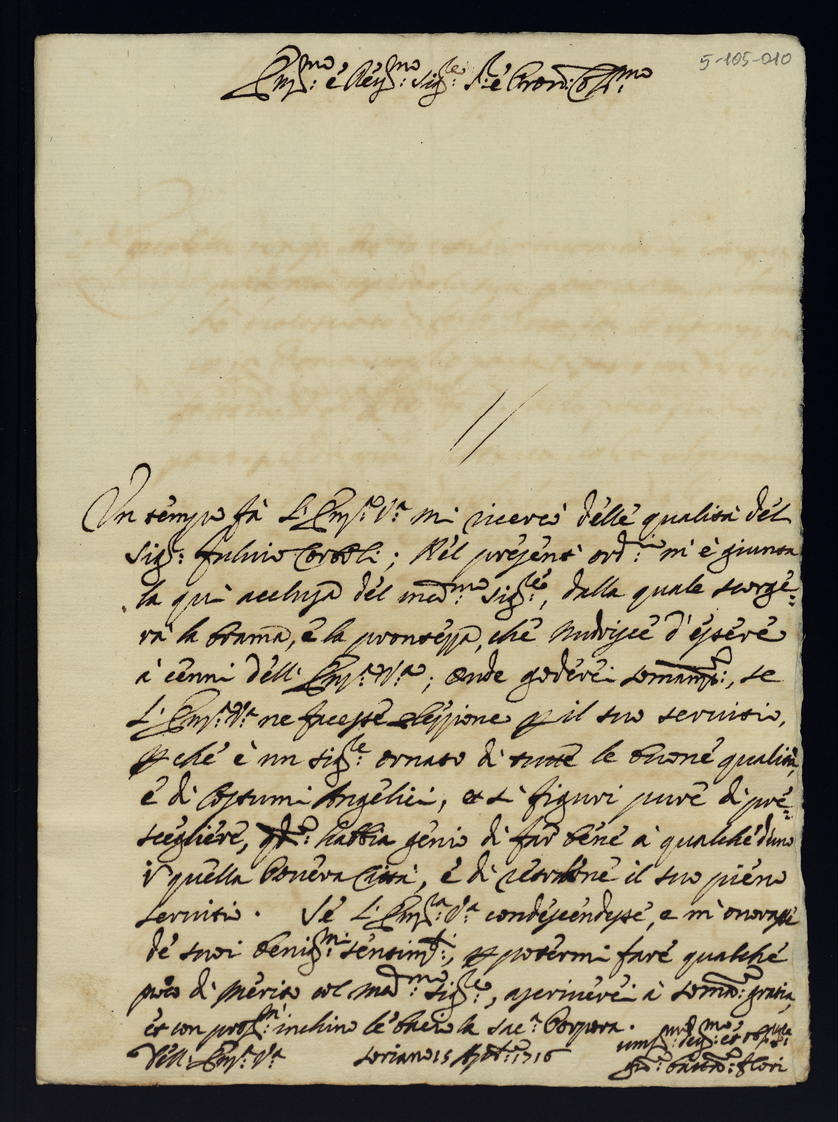 5-105-010
Em:mo é Rev:mo Sig:re S:re é Pron: Col:mo
Un tempo fà L'Em:a V:a mi ricercò délle qualità dél
Sig: fulvio ; Nél présent' ord:o m'è giunta
la qui acclusa dél med:mo Sig:ré, dalla quale scorgé=
rà la brama, é la prontezza, ché nudrisce d'esseré
à cenni déll'Em:a V:a; onde goderéi somam:te, se
L'Em:a V:a ne facesse elezzione p il suo servitio,
p ché è un Sig:re ornato di tutte le buoné qualità,
é di Costumi Angélici, et si figuri puré di pré=
scegliéré, habbia génio di far béné à qualché d'uno
quella povera Città, é di retrarné il suo piéno
servitio. Sé L'Em:a V:a condéscendésse, e m'onorasse
dé suoi benig:mi séntim:ti, p potérmi faré qualché
di mérito col med:mo Sig:re, ascrivéréi à som:a gratia,
ét con prof:mi inchino lé bacio la Sac:a Porpora.
Déll'Em:a V:a Soriano 15 Ag:to 1716
um:mo dev:mo et obblig:mo
flori